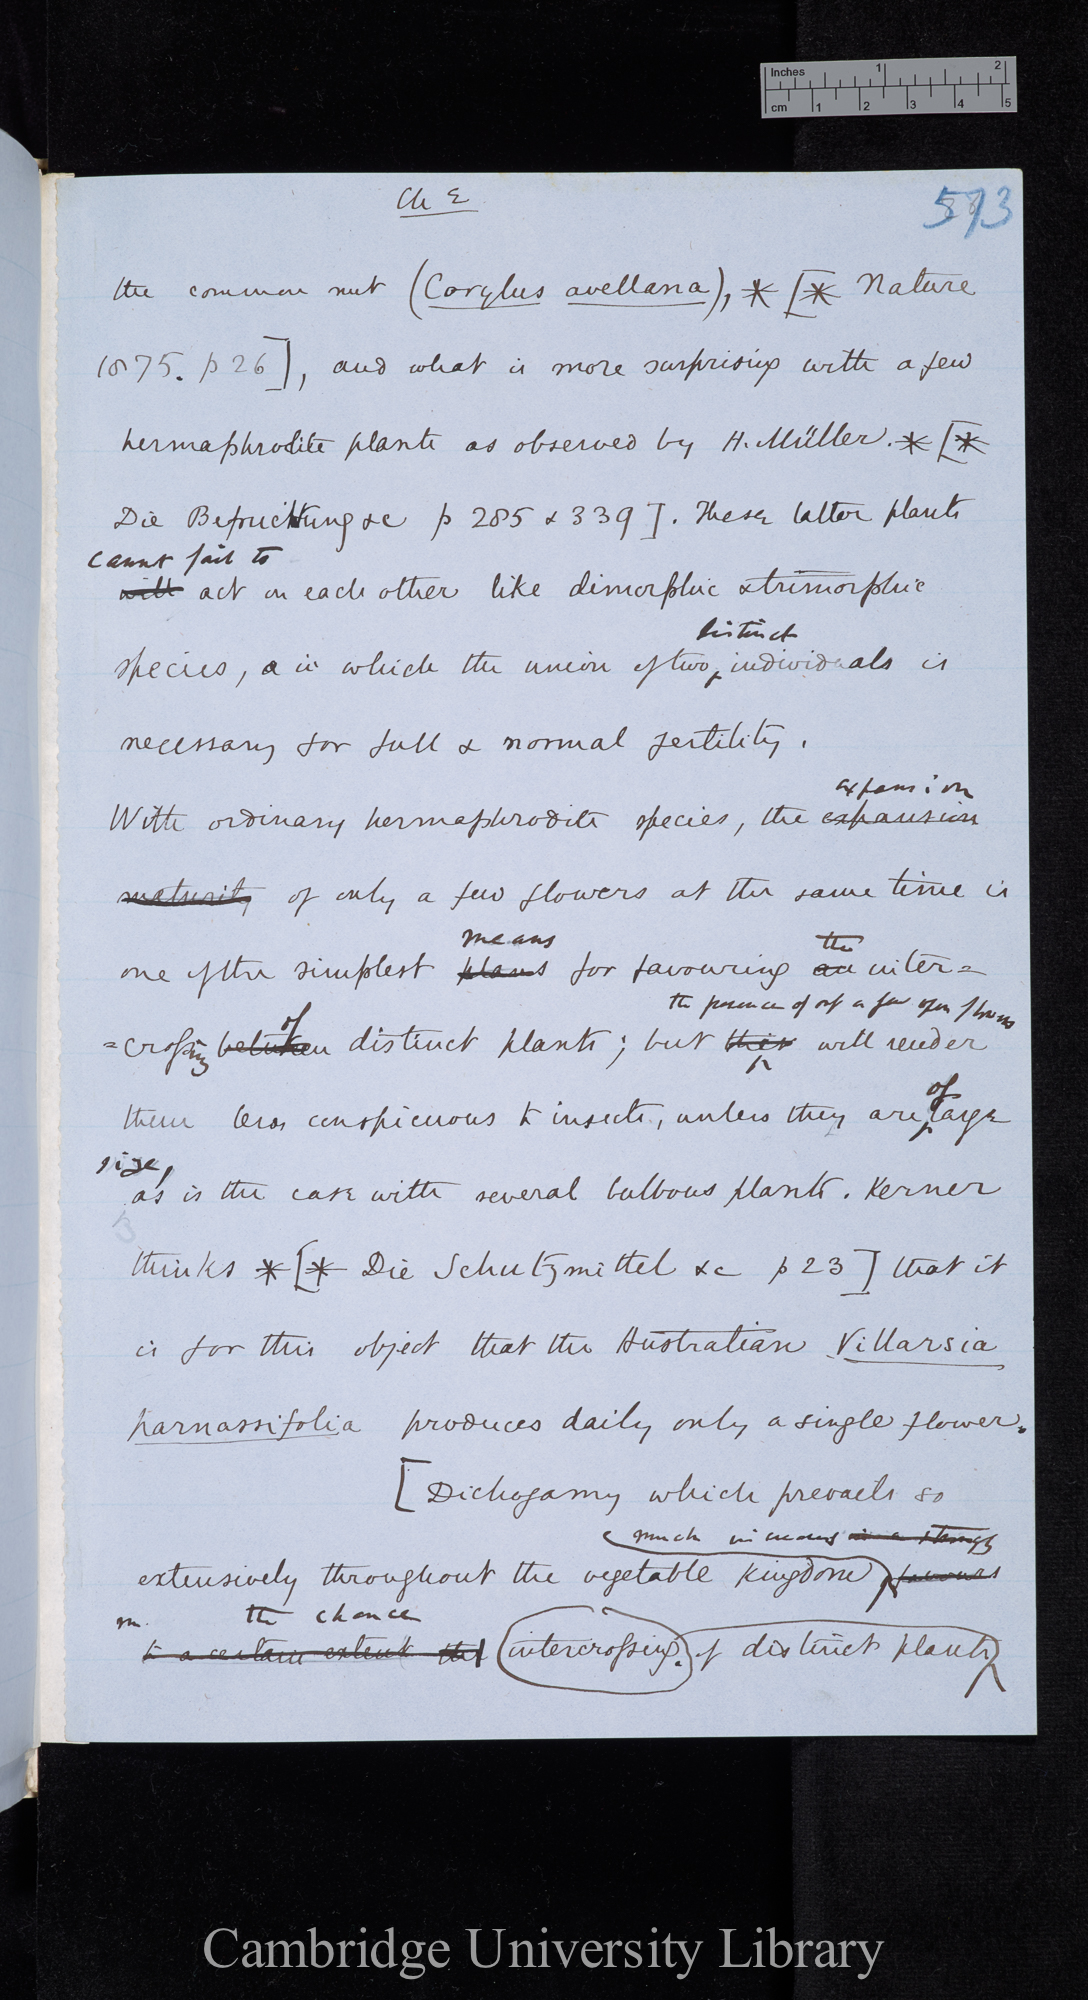 Inches 1 2
cm 1 2 3 4 5
Ch 2
593
the common nut (Corylus avellana), * [* Nature
1875. p 26], and what is more surprising with a few
hermaphrodite plants as observed by H. Müller. * [*
Die Befruchtung &c p 285 & 339]. These latter plants
cannot fail to
will act on each other like dimorphic & trimorphic
distinct
species, a in which the union of two individuals is
necessary for full & normal fertility.
expansion
With ordinary hermaphrodite species, the expansion
maturity of only a few flowers at the same time is
means the
one of the simplest plans for favouring an inter=
of the presence of only a few open flowers
=crossing between distinct plants; but this will render
of
them less conspicuous to insects, unless they are large
size,
as is the case with several bulbous plants. Kerner
thinks * [* Die Schutzmittel &c p 23] that it
is for this object that the Australian Villarsia
parnassifolia produces daily only a single flower.
[Dichogamy which prevails so
much increases in a strongly
extensively throughout the vegetable kingdom favours
the chance
to a certain extent the intercrossing. of distinct plants
Cambridge University Library